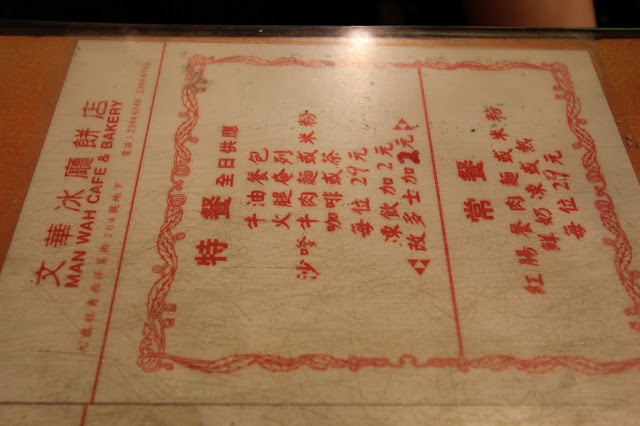 文華冰廳餅店
MAN WAH CAFE & BAKERY
九龍旺角西洋菜街204號地下 電話:
特餐 全日供應
牛油餐包
火腿奄列
沙嗲牛肉麵或米粉
咖啡或茶
每位 29元
凍飲加2元
改多士加2元
常餐
紅腸餐肉麵或米粉
鮮奶凍或熱
每位 29元